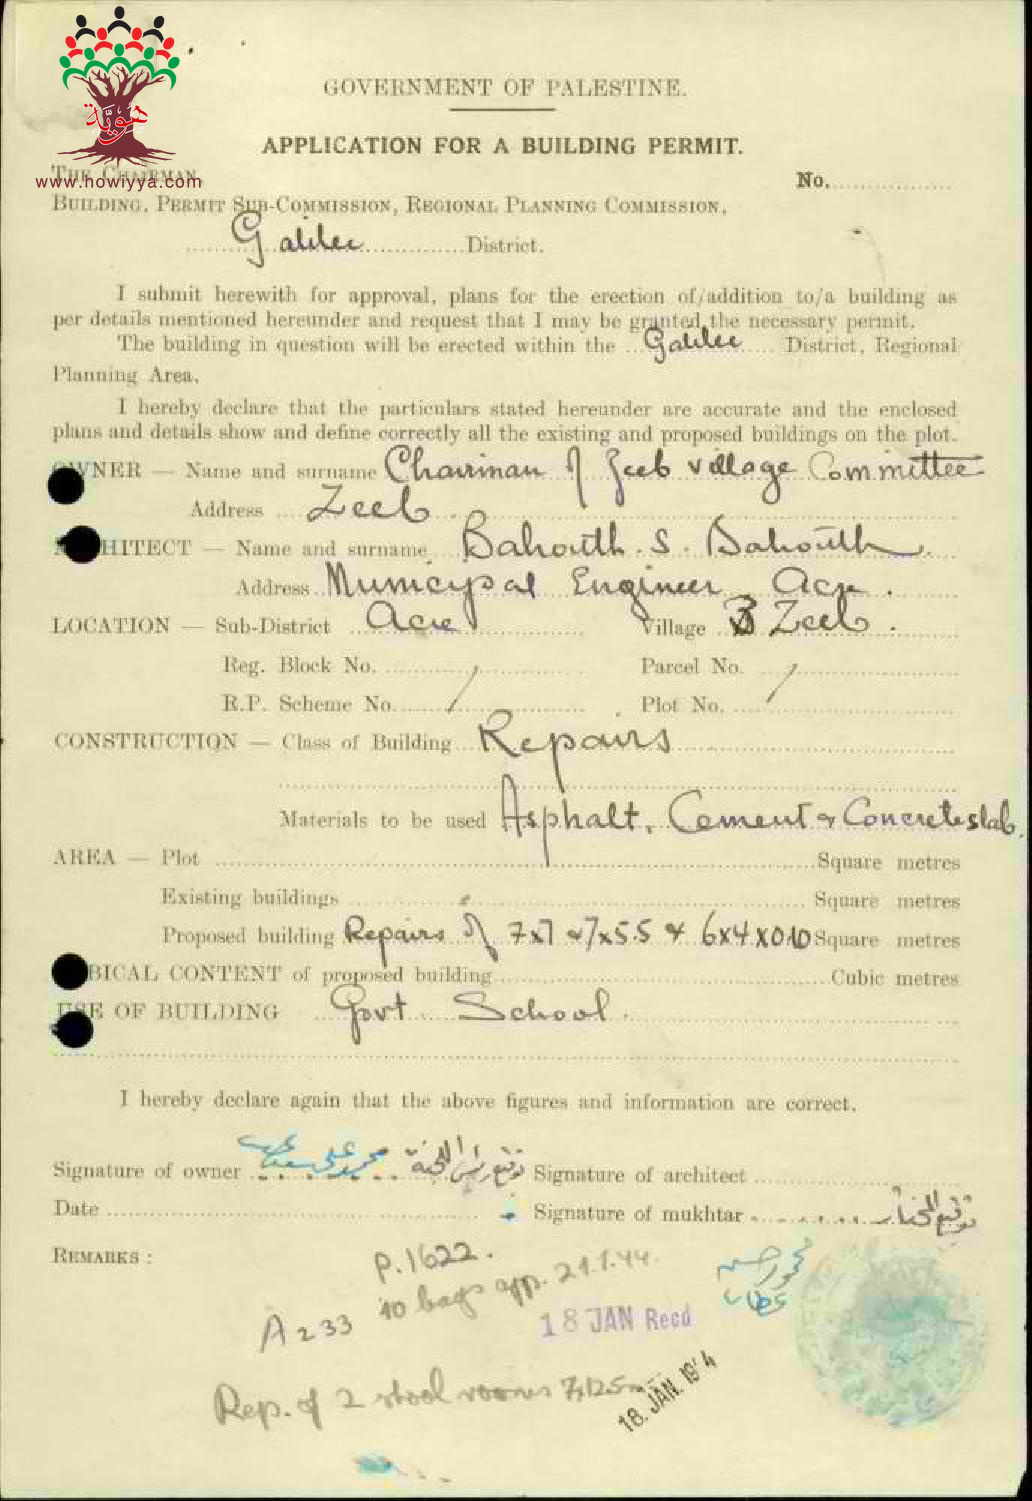 هوية
www.howiyya.com
GOVERNMENT OF PALESTINE.
APPLICATION FOR A BUILDING PERMIT.
THE CHAIRMAN,
No. ....................
BUILDING, PERMIT SUB-COMMISSION, REGIONAL PLANNING COMMISSION,
Galilee District.
I submit herewith for approval, plans for the erection of/addition to/a building as
per details mentioned hereunder and request that I may be granted the necessary permit.
The building in question will be erected within the Galilee District, Regional
Planning Area.
I hereby declare that the particulars stated hereunder are accurate and the enclosed
plans and details show and define correctly all the existing and proposed buildings on the plot.
OWNER — Name and surname Chairman of Zeeb village Committee
Address Zeeb
ARCHITECT — Name and surname Bahouth. S. Bahouth
Address Municipal Engineer Acre.
LOCATION — Sub-District Acre Village Zeeb.
Reg. Block No. / Parcel No. /
R.P. Scheme No. Plot No.
CONSTRUCTION — Class of Building Repairs
Materials to be used Asphalt, Cement & Concrete slab.
AREA — Plot Square metres
Existing buildings Square metres
Proposed building Repairs of 7x7 & 7x5.5 & 6x4x0.10 Square metres
CUBICAL CONTENT of proposed building Cubic metres
USE OF BUILDING Govt School.
I hereby declare again that the above figures and information are correct.
Signature of owner توقيع رئيس اللجنة Signature of architect
Date Signature of mukhtar توقيع المختار
REMARKS :
P.1622.
10 bags app. 21.1.44.
A 233
18 JAN Recd
Rep. of 2 rooms
18. JAN. 19 4